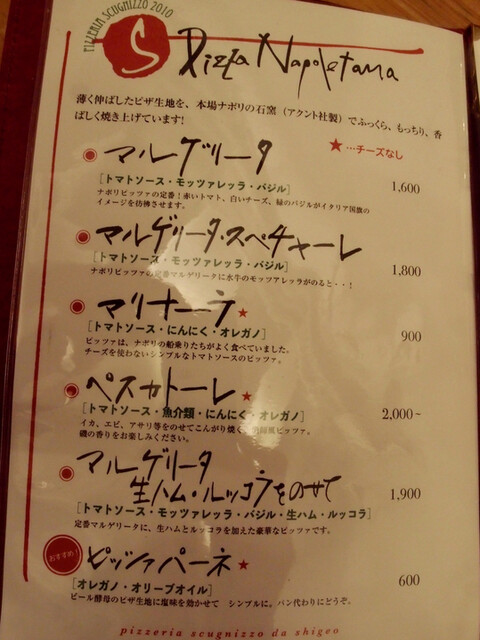 PIZZERIA SCUGNIZZO 2010
S
Pizza Napoletana
薄く伸ばしたピザ生地を、本場ナポリの石窯(アクント社製)でふっくら、もっちり、香
ばしく焼き上げています!
★…チーズなし
マルゲリータ
[トマトソース・モッツァレッラ・バジル]
1,600
ナポリピッツァの定番!赤いトマト、白いチーズ、緑のバジルがイタリア国旗の
イメージを彷彿させます。
マルゲリータ・スペチャーレ
[トマトソース・モッツァレッラ・バジル]
1,800
ナポリピッツァの定番マルゲリータに水牛のモッツアレッラがのると・・!
マリナーラ★
[トマトソース・にんにく・オレガノ]
900
ピッツァは、ナポリの船乗りたちがよく食べていました。
チーズを使わないシンプルなトマトソースのピッツァ。
ペスカトーレ★
[トマトソース・魚介類・にんにく・オレガノ]
2,000~
イカ、エビ、アサリ等をのせてこんがり焼く、風ピッツァ。
磯の香りをお楽しみください。
マルゲリータ
生ハム・ルッコラをのせて
1,900
[トマトソース・モッツァレッラ・バジル・生ハム・ルッコラ]
定番マルゲリータに、生ハムとルッコラを加えた豪華なピッツァです。
おすすめ!
ピッツァパーネ★
[オレガノ・オリーブオイル]
600
ビール酵母のピザ生地に塩味を効かせて シンプルに。パン代わりにどうぞ。
pizzeria scugnizzo da shigeo